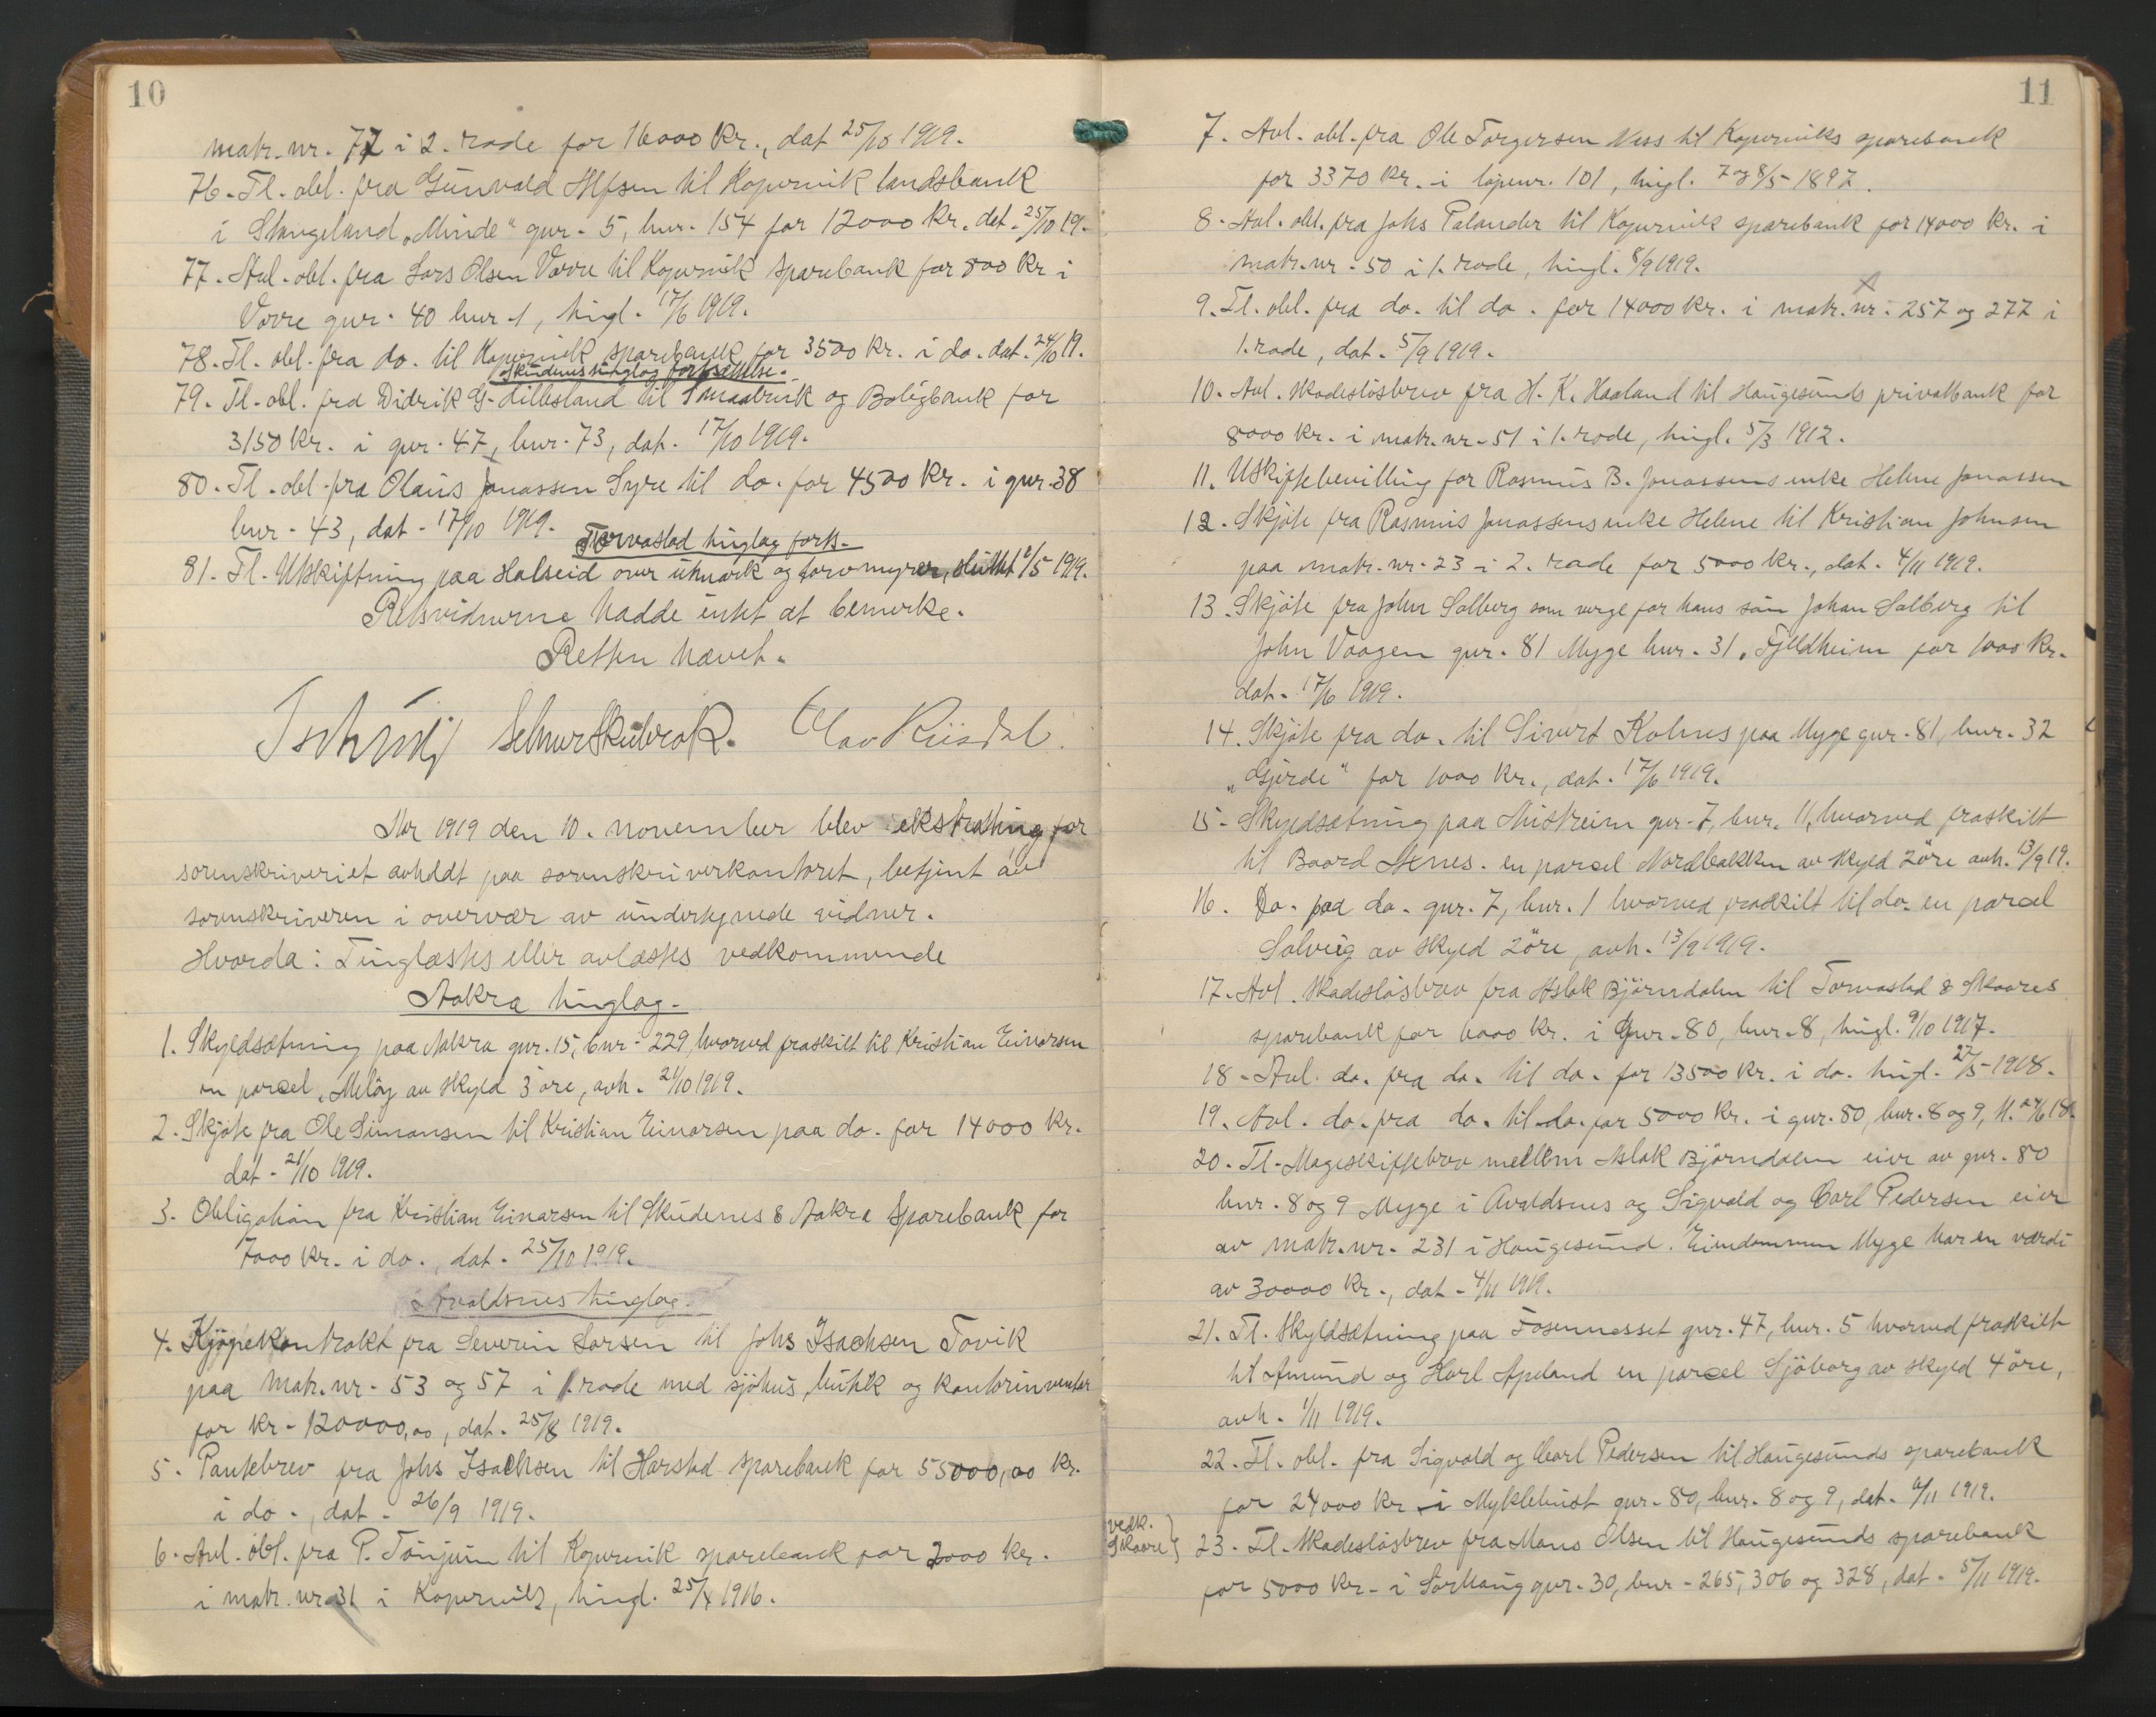 10
matr. nr. 77 i 2. rode for 16000 Kr., dat 25/10 1919.
76. Tl. obl. fra Gunvald Alfsen til Kopervik landsbank
i Stangeland „Minde“ gnr. 5, bnr. 154 for 12000 Kr. dat. 25/10 19.
77. Avl. obl. fra Lars Olsen Vorre til Kopervik sparebank for 800 Kr i
Vorre gnr. 40 bnr 1, tingl. 17/6 1919.
78. Tl. obl. fra do. til Kopervik sparebank for 3500 Kr. i do. dat. 24/10 19.
Skudenes tinglag fortsættelse.
79. Tl. obl. fra Didrik G. Lillesland til Smaabruk og Boligbank for
3150 Kr. i gnr. 47, bnr. 73, dat. 17/10 1919.
80. Tl. obl. fra Olaus Jonassen Syre til do. for 4500 Kr. i gnr. 38
bnr. 43, dat. 17/10 1919.
Torvastad tinglag forts.
81. Tl. Utskiftning paa Halseid over utmark og torvmyrer, sluttet /5 1919.
Retsvidnerne hadde intet at bemerke.
Retten hævet.
Olav Riisdal.
Aar 1919 den 10. november blev ekstrating for
sorenskriveriet avholdt paa sorenskriverkontoret, betjent av
sorenskriveren i overvær av undertegnede vidner.
Hvorda: Tinglæstes eller avlæstes vedkommende
Aakra tinglag.
1. Skyldsætning paa Aakra gnr. 15, bnr. 229, hvorved fraskilt til Kristian Einarsen
en parcel „Meløy av skyld 3 øre, avh. 21/10 1919.
2. Skjøte fra Ole Simonsen til Kristian Einarsen paa do. for 14000 Kr.
dat. 21/10 1919.
3. Obligation fra Kristian Einarsen til Skudenes & Aakra Sparebank for
7000 Kr. i do., dat. 25/10 1919.
Avaldsnes tinglag.
4. Kjøpekontrakt fra Severin Larsen til Johs Isachsen Tovik
paa matr. nr. 53 og 57 i 1. rode med sjøhus, butik og kontorinventar
for Kr. 120000,00, dat. 25/8 1919.
5. Pantebrev fra Johs Isachsen til Harstad sparebank for 55000,00 Kr.
i do., dat. 26/9 1919.
6. Avl. obl. fra P. Tønjum til Kopervik sparebank for 2000 Kr.
i matr. nr 31 i Kopervik, tingl. 25/4 1916.
11
7. Avl. obl. fra Ole Torgersen Næss til Koperviks sparebank
for 3370 Kr. i løpenr. 101, tingl. 7 og 8/5 1897.
8. Avl. obl. fra Johs Palander til Kopervik sparebank for 14000 Kr. i
matr. nr. 50 i 1. rode, tingl. 8/9 1919.
9. Tl. obl. fra do. til do. for 14000 Kr. i matr. nr. 257 og 277 i
1. rode, dat. 5/9 1919.
10. Avl. skadesløsbrev fra H. K. Haaland til Haugesunds privatbank for
8000 Kr. i matr. nr. 51 i 1. rode, tingl. 5/3 1912.
11. Uskiftebevilling for Rasmus B. Jonassens enke Helene Jonassen
12. Skjøte fra Rasmus Jonassens enke Helene til Kristian Johnsen
paa matr. nr. 23 i 2. rode for 5000 Kr., dat. 4/11 1919.
13. Skjøte fra John Solberg som verge for hans søn Johan Solberg til
John Vaagen gnr. 81 Myge bnr. 31 „Fjeldheim for 1000 Kr.
dat. 17/6 1919.
14. Skjøte fra do. til Sivert Kolnes paa Myge gnr. 81, bnr. 32
„Gjerde“ for 1000 Kr., dat. 17/6 1919.
15. Skyldsætning paa Mistreim gnr. 7, bnr. 11, hvorved fraskilt
til Baard Stenes. en parcel Nordbakken av skyld 2 øre avh. 13/9 19.
16. Do. paa do. gnr. 7, bnr. 1 hvorved fraskilt til do. en parcel
Solveig av skyld 2 øre, avh. 13/9 1919.
17. Avl. skadesløsbrev fra Aslak Bjørndalen til Torvastad & Skaares
sparebank for 6000 Kr. i gnr. 80, bnr. 8, tingl. 9/10 1917.
18. Avl. do. fra do. til do. for 13500 Kr. i do. tingl. 27/5 1918.
19. Avl. do. fra do. til do. for 5000 Kr. i gnr. 80, bnr. 8 og 9, tl. 24/6 18.
20. Tl. Mageskiftebrev mellem Aslak Bjørndalen eier av gnr. 80
bnr. 8 og 9 Myge i Avaldsnes og Sigvald og Carl Pedersen eier
av matr. nr. 231 i Haugesund. Eiendommen Myge har en værdi
av 30000 Kr., dat. 4/11 1919.
21. Tl. Skyldsætning paa Fosennesset gnr. 47, bnr. 5 hvorved fraskilt
til Amund og Karl Apeland en parcel Sjøborg av skyld 4 øre,
avh. 1/11 1919.
22. Tl. obl. fra Sigvald og Carl Pedersen til Haugesunds sparebank
for 24000 Kr i Myklebust gnr. 80, bnr. 8 og 9, dat. 6/11 1919.
vedk.
Skaare}
23. Tl. Skadesløsbrev fra Mons Olsen til Haugesunds sparebank
for 5000 Kr. i Sørhaug gnr. 30, bnr. 265, 306 og 328, dat. 5/11 1919.